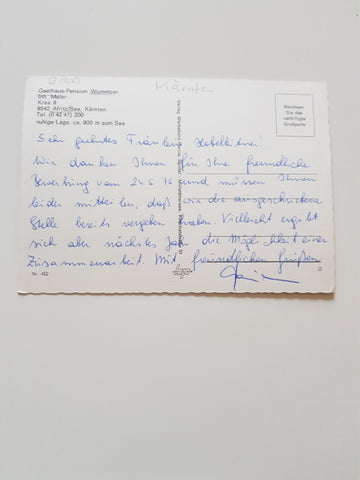 Kärnten
Gasthaus-Pension Wurmitzer
Inh. Maier
Kras 8
9542 Afritz/See, Kärnten
Tel. (0 42 47) 200
ruhige Lage, ca. 900 m zum See.
Benützen
Sie das
verbilligte
Grußporto
Sehr geehrtes Fräulein
Wir danken Ihnen für Ihre freundliche
Bewerbung vom 24.5.75 und müssen Ihnen
leider mitteilen, daß wir die ausgeschriebene
Stelle bereits vergeben haben. Vielleicht ergibt
sich aber nächstes Jahr die Möglichkeit einer
Zusammenarbeit. Mit freundlichen Grüßen
Nr. 452